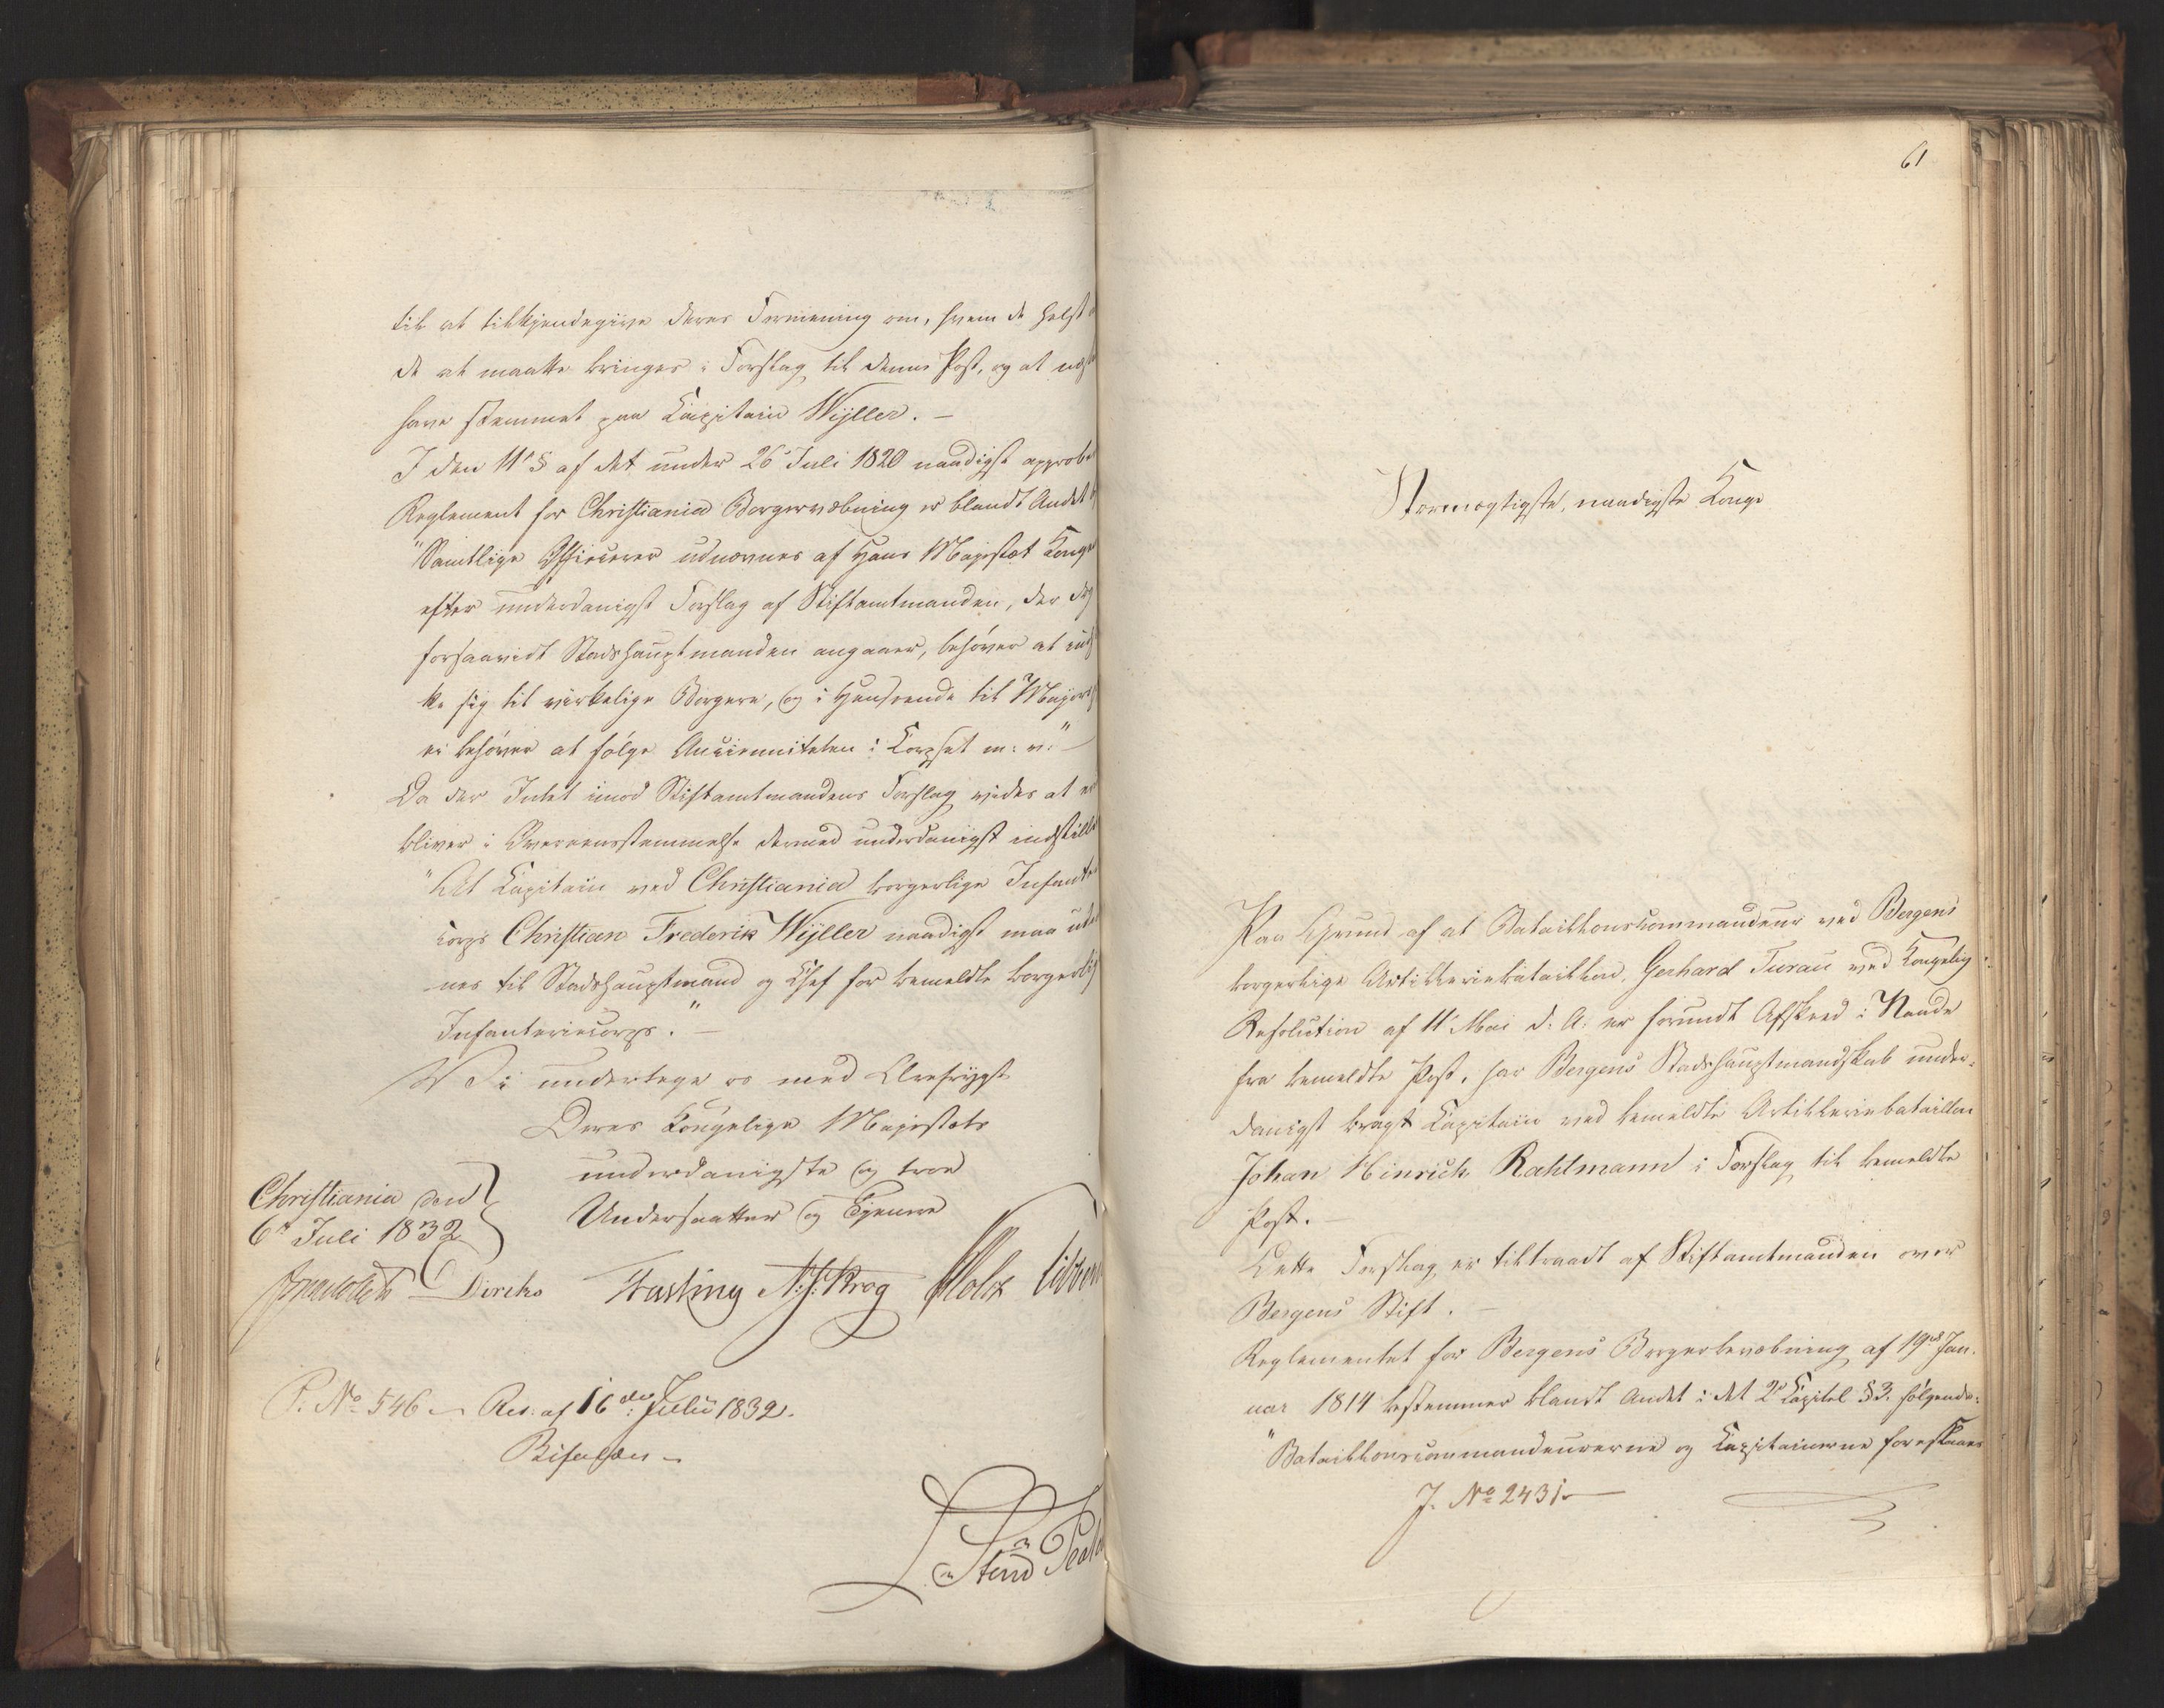 til at tilkjendegive deres Formening om, hvem de helst
de at maatte bringes i Forslag til denne Post, og at
have stemmet paa Capitain Wyller. –
I den 11te § af det under 26de Juli 1820 naadigst approbe
Reglement for Christiania Borgervæbning er blandt Andet
"Samtlige Officierer udnævnes af Hans Majestæt Konge
efter underdanigst Forslag af Stiftamtmanden, der dog
forsaavidt Stadshauptmanden angaaer, behøver at ind
ke sig til virkelige Borgere, og i Henseende til Majoren
ei behøver at følge Ancienniteten i Corpset m: v:" –
Da der Intet imod Stiftamtmandens Forslag vides at
bliver i Overeensstemmelse dermed underdanigst indstille
"At Capitain ved Christiania borgerlige Infante
corps Christian Frederik Wyller naadigst maa
nes til Stadshauptmand og Chef for bemeldte borgerlig
Infanteriecorps." –
Vi undertegne os med Ærefrygt
Deres Kongelige Majestæts
underdanigste og troe
Undersaatter og Tjenere
Christiania den
6te Juli 1832
Diriks Fasting N. J. Krog Holst
P. No 546 – Res: af 16de Julii 1832.
Bifalden –
61
Stormægtigste, naadigste Konge
Paa Grund af at Bataillonscommandeur ved Bergens
borgerlige Artilleriebataillon, Gerhard Turau ved Kongelig
Resolution af 11te Mai d. A. er forundt Afskeed i Naade
fra bemeldte Post, har Bergens Stadshauptmandskab under-
danigst bragt Capitain ved bemeldte Artilleriebataillon
Johan Hinrich Rahtmann i Forslag til bemeldte
Post. –
Dette Forslag er tiltraadt af Stiftamtmanden over
Bergens Stift. –
Reglementet for Bergens Borgerbevæbning af 19de Jan-
uar 1814 bestemmer blandt Andet i det 2det Capitel § 3. følgende:
"Bataillonscommandeurerne og Capitainerne foreslaaes
J. No 2431. –